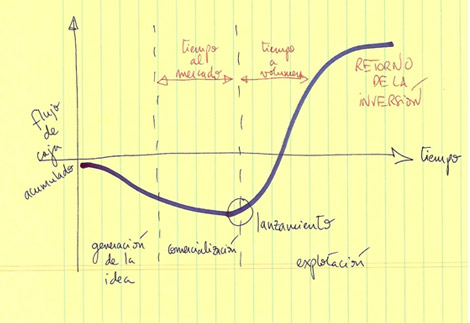 tiempo
al
mercado
tiempo
a
volumen
RETORNO
DE LA
INVERSIÓN
flujo
de
caja
acumulado
tiempo
lanzamiento
generación
de la
idea
comercialización
explotación